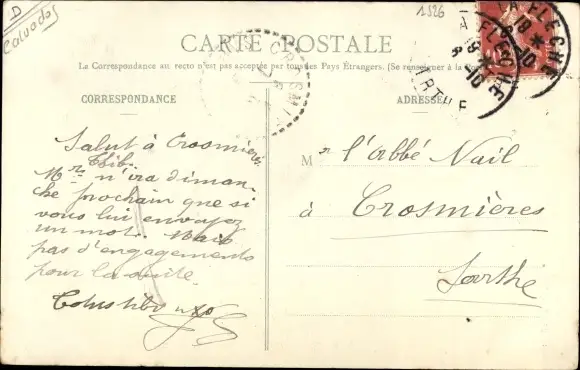 D
Calvados
1526
LA FLÈCHE
CARTE POSTALE
La Correspondance au recto n'est pas acceptée par tous les Pays Étrangers. (Se renseigner à la Poste)
CORRESPONDANCE
ADRESSE
SARTHE
Salut à Crosmières
Mr n'ira diman-
che prochain que si
vous lui envoyez
un mot. Mais
pas d'engagements
pour la suite.
Mr l'abbé Nail
à Crosmières
Sarthe